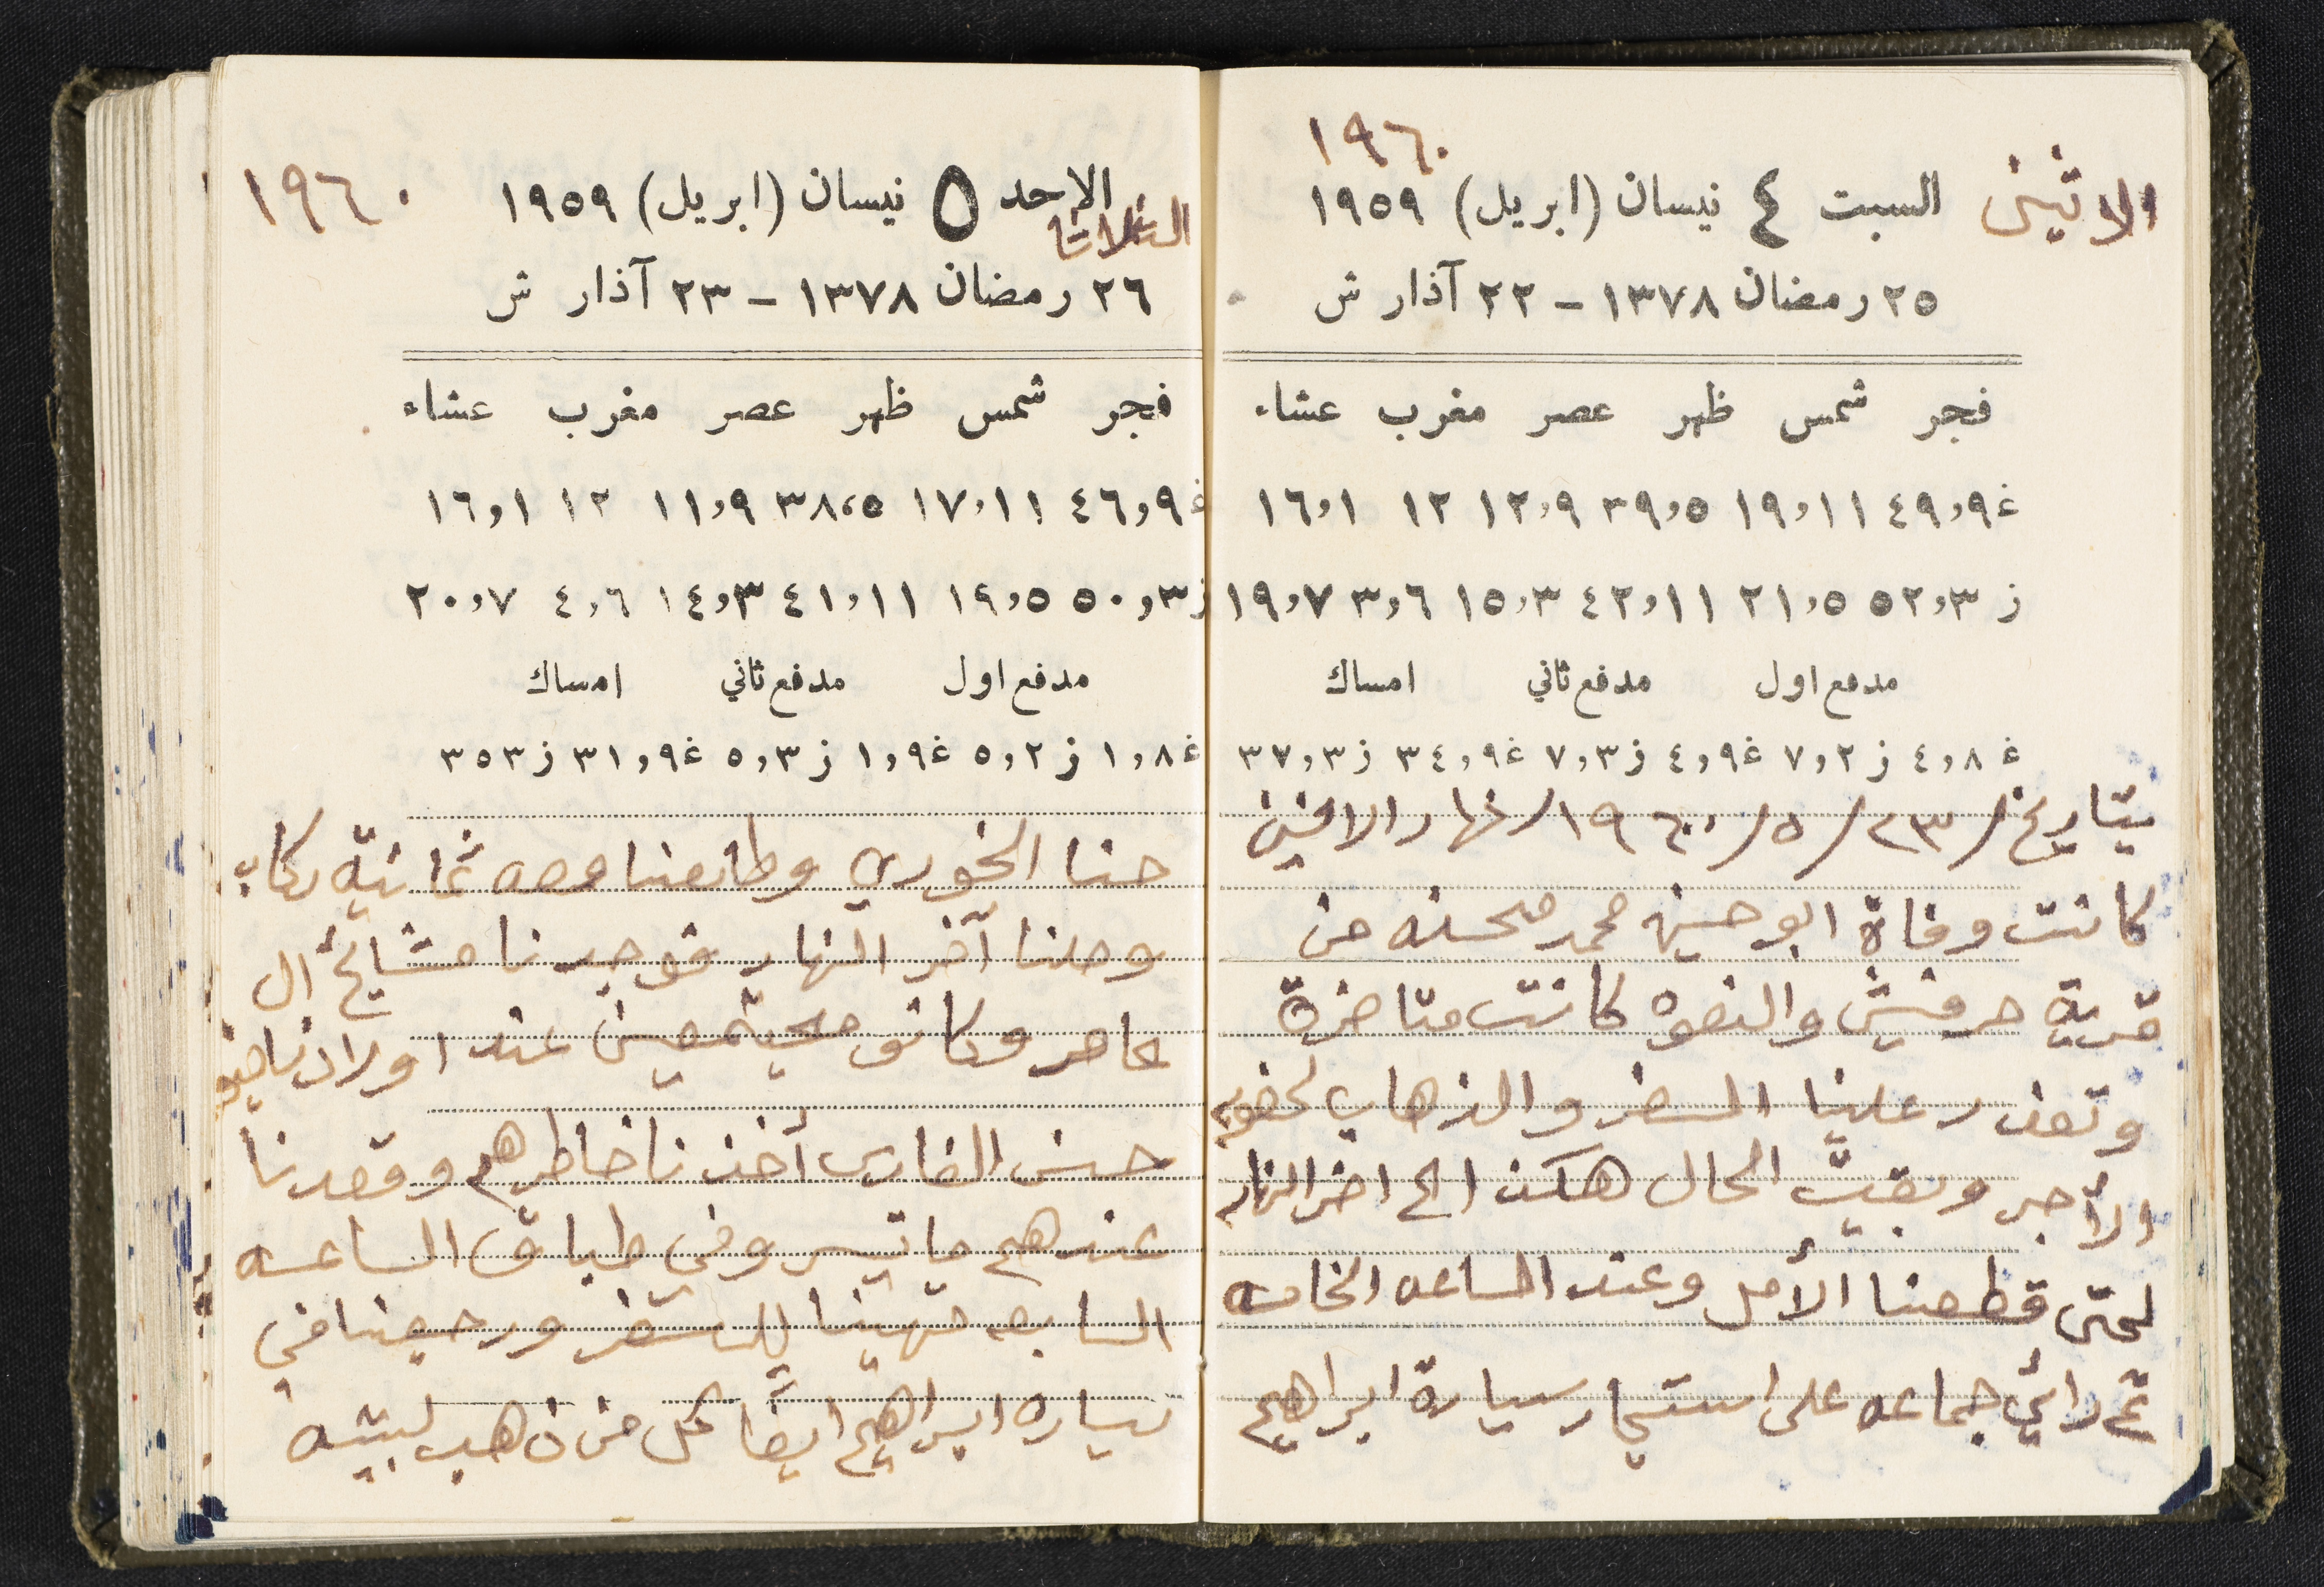 ١٩٦٠
الاثنين السبت ٤ نيسان (ابريل) ١٩٥٩
٢٥ رمضان ١٣٧٨ - ٢٢ آذار ش
فجر شمس ظهر عصر مغرب عشاء
غ ٤٩,٩ ١٩,١١ ٣٩,٥ ١٢,٩ ١٢ ١٦,١
ز ٥٢,٣ ٢١,٥ ٤٢,١١ ١٥,٣ ٣,٦ ١٩,٧
مدفع اول مدفع ثاني امساك
غ ٤,٨ ز ٧,٢ غ ٤,٩ ز ٧,٣ غ ٣٤,٩ ز ٣٧,٣
بتاريخ /٢٣/٥/١٩٦٠/ نهار الاثنين
كانت وفاة ابو حسين محمد محسنه من
قرية حرفيش والنعوه كانت متاخرة
وتعذر علينا السفر والذهاب لحضور
الأجر وبقيت الحال هكذا الى اخر النهار
لحتى قطعنا الأمل وعند الساعه الخامسه
تم رائي جماعه على استيجار سيارة ابراهيم
الاحد ٥ نيسان (ابريل) ١٩٥٩ ١٩٦٠
الثلاثا
٢٦ رمضان ١٣٧٨ - ٢٣ آذار ش
فجر شمس ظهر عصر مغرب عشاء
غ ٤٦,٩ ١٧,١١ ٣٨,٥ ١١,٩ ١٢ ١٦,١
ز ٥٠,٣ ١٩,٥ ٤١,١١ ١٤,٣ ٤,٦ ٢٠,٧
مدفع اول مدفع ثاني امساك
غ ١,٨ ز ٥,٢ غ ١,٩ ز ٥,٣ غ ٣١,٩ ز ٣٥٣
حنا الخوري وطلعنا معه ثمانية ركاب
وصلنا آخر النهار فوجدنا مشايخ ال
عامر وكانو عند اولاد ناصيف
حسن الفارس أخذنا خاطرهم وقعدنا
عندهم ما تيسر وفي طباق الساعه
السابعه تهينا للسفر ورجعنا في
سيارة ابراهيم ايضاً كل من ذهب لبيته